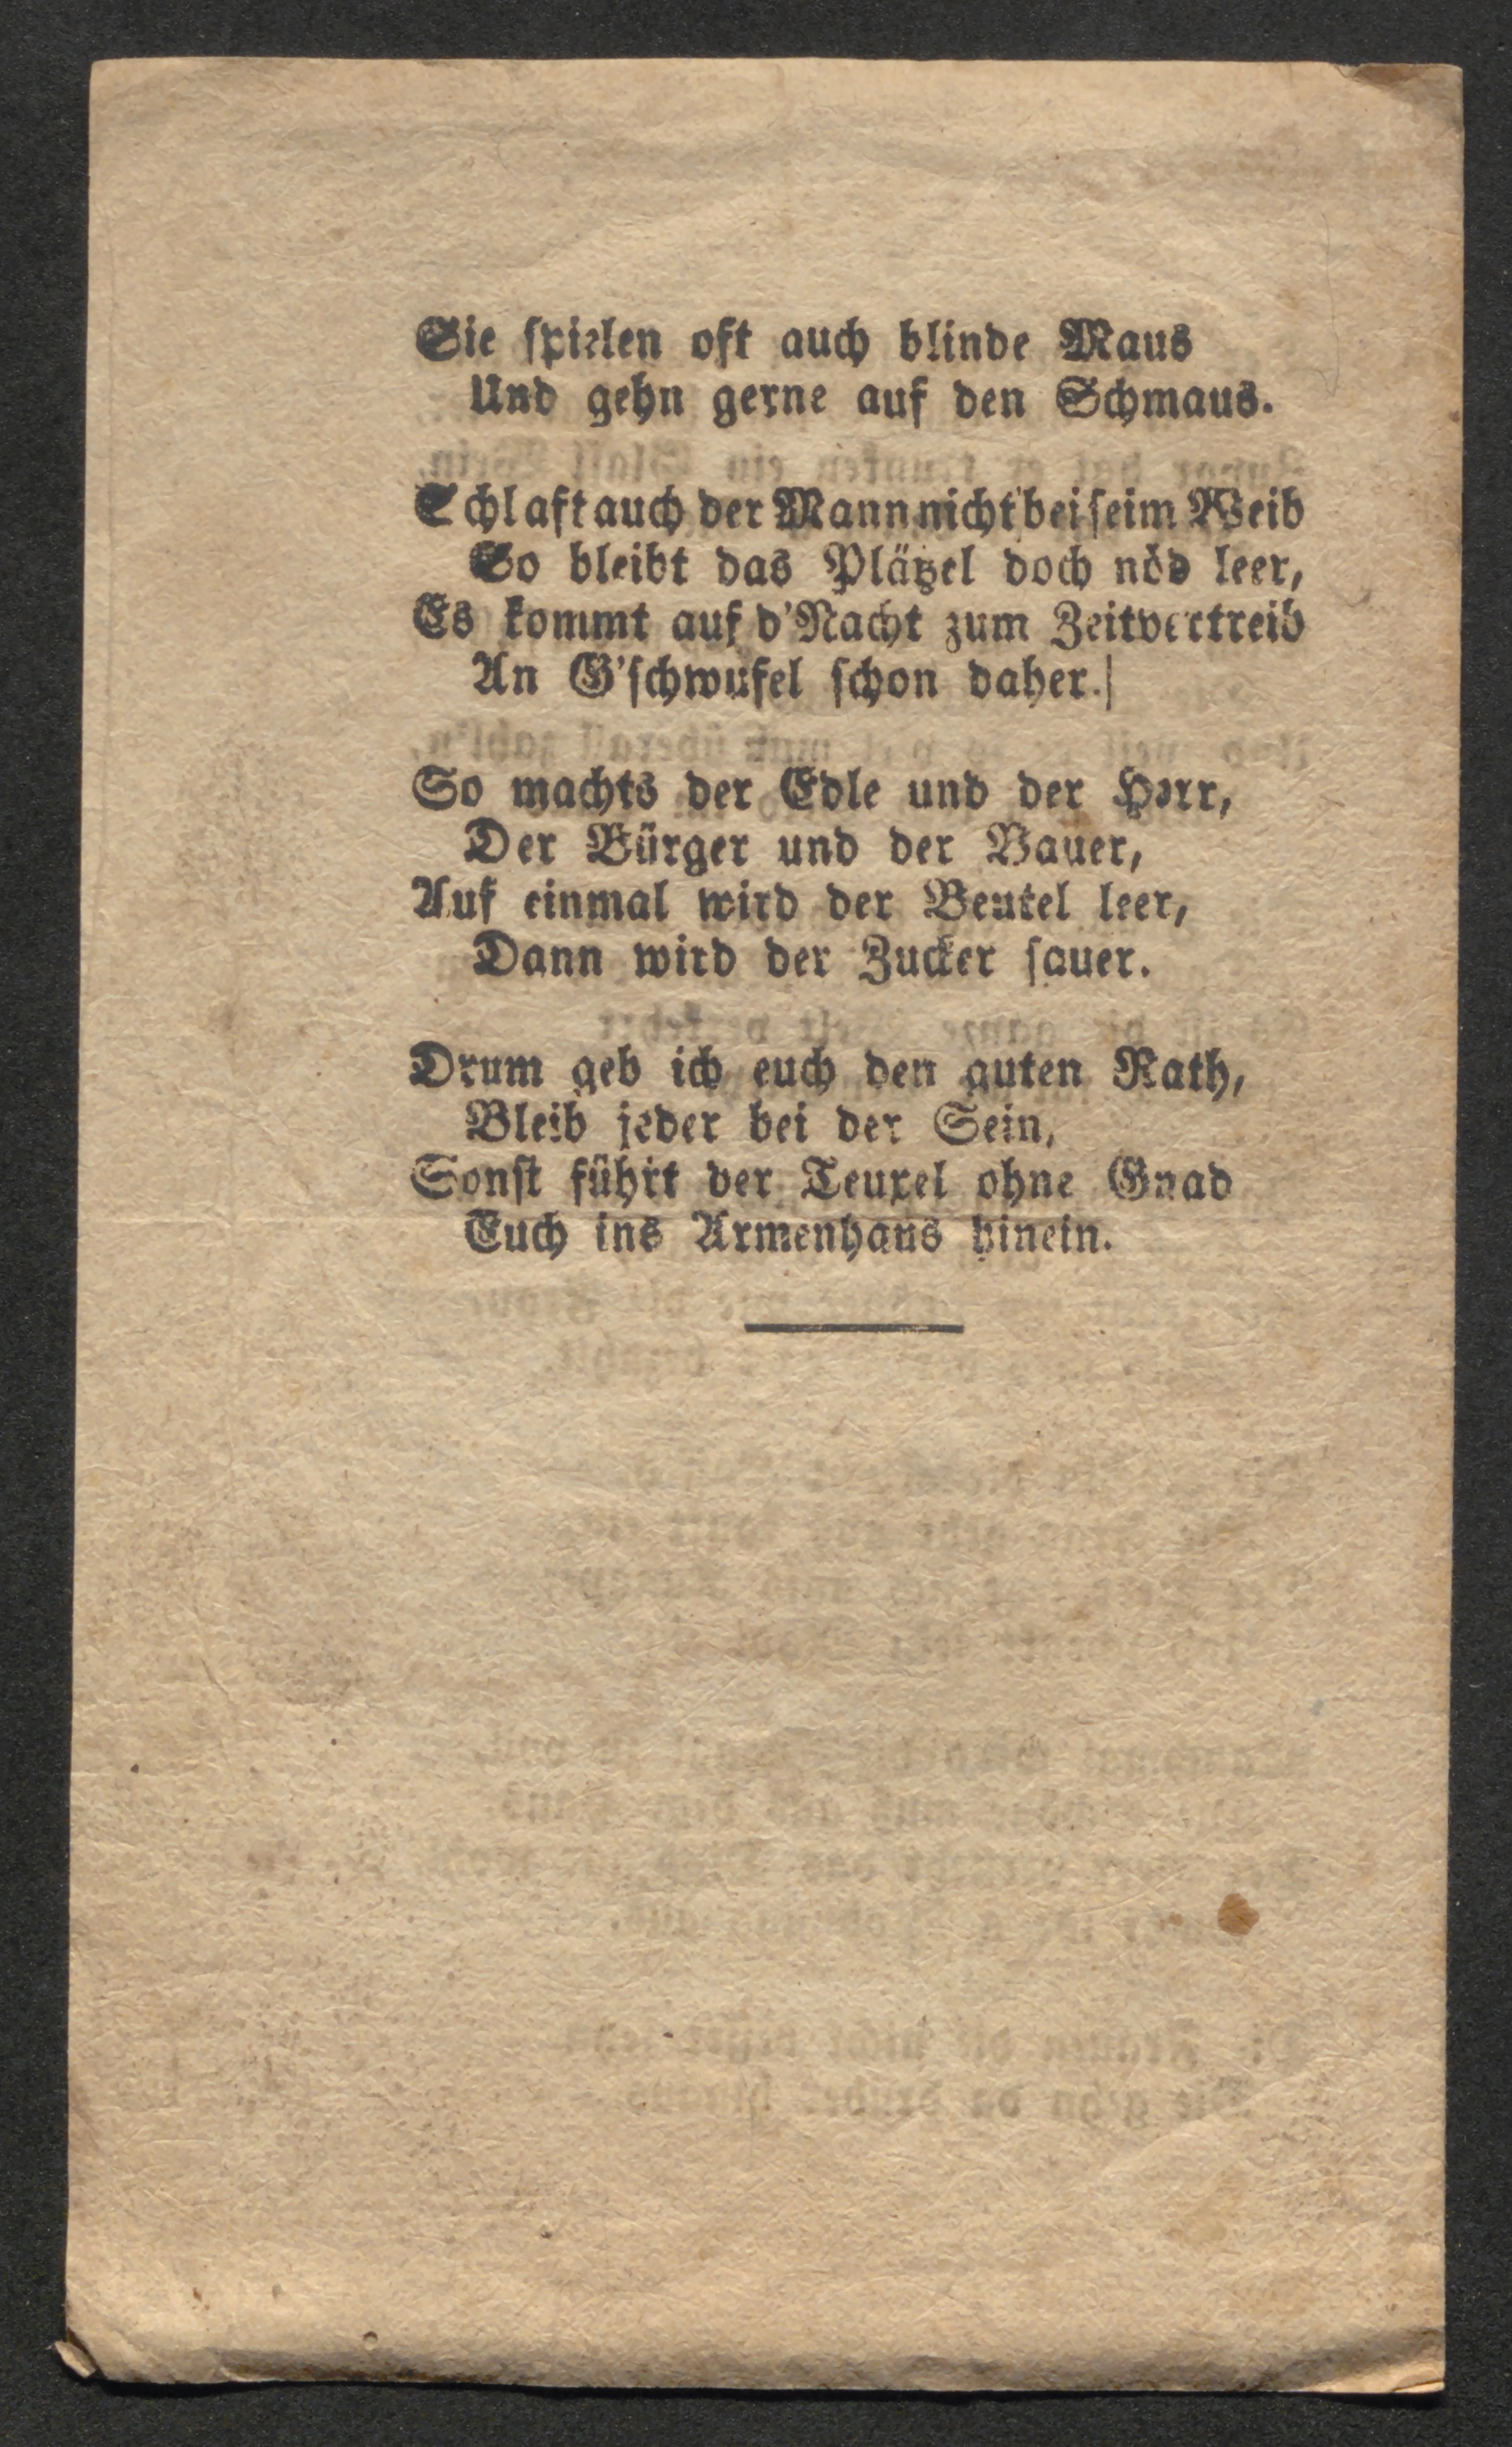 Sie spielen oft auch blinde Maus
Und gehn gerne auf den Schmaus.
Schlaft auch der Mann nicht bei seim Weib
So bleibt das Plätzel doch nöd leer,
Es kommt auf d'Nacht zum Zeitvertreib
An G'schwufel schon daher.
So machts der Edle und der Herr,
Der Bürger und der Bauer,
Auf einmal wird der Beutel leer,
Dann wird der Zucker sauer.
Drum geb ich euch den guten Rath,
Bleib jeder bei der Sein,
Sonst führt der Teuxel ohne Gnad
Euch ins Armenhaus hinein.